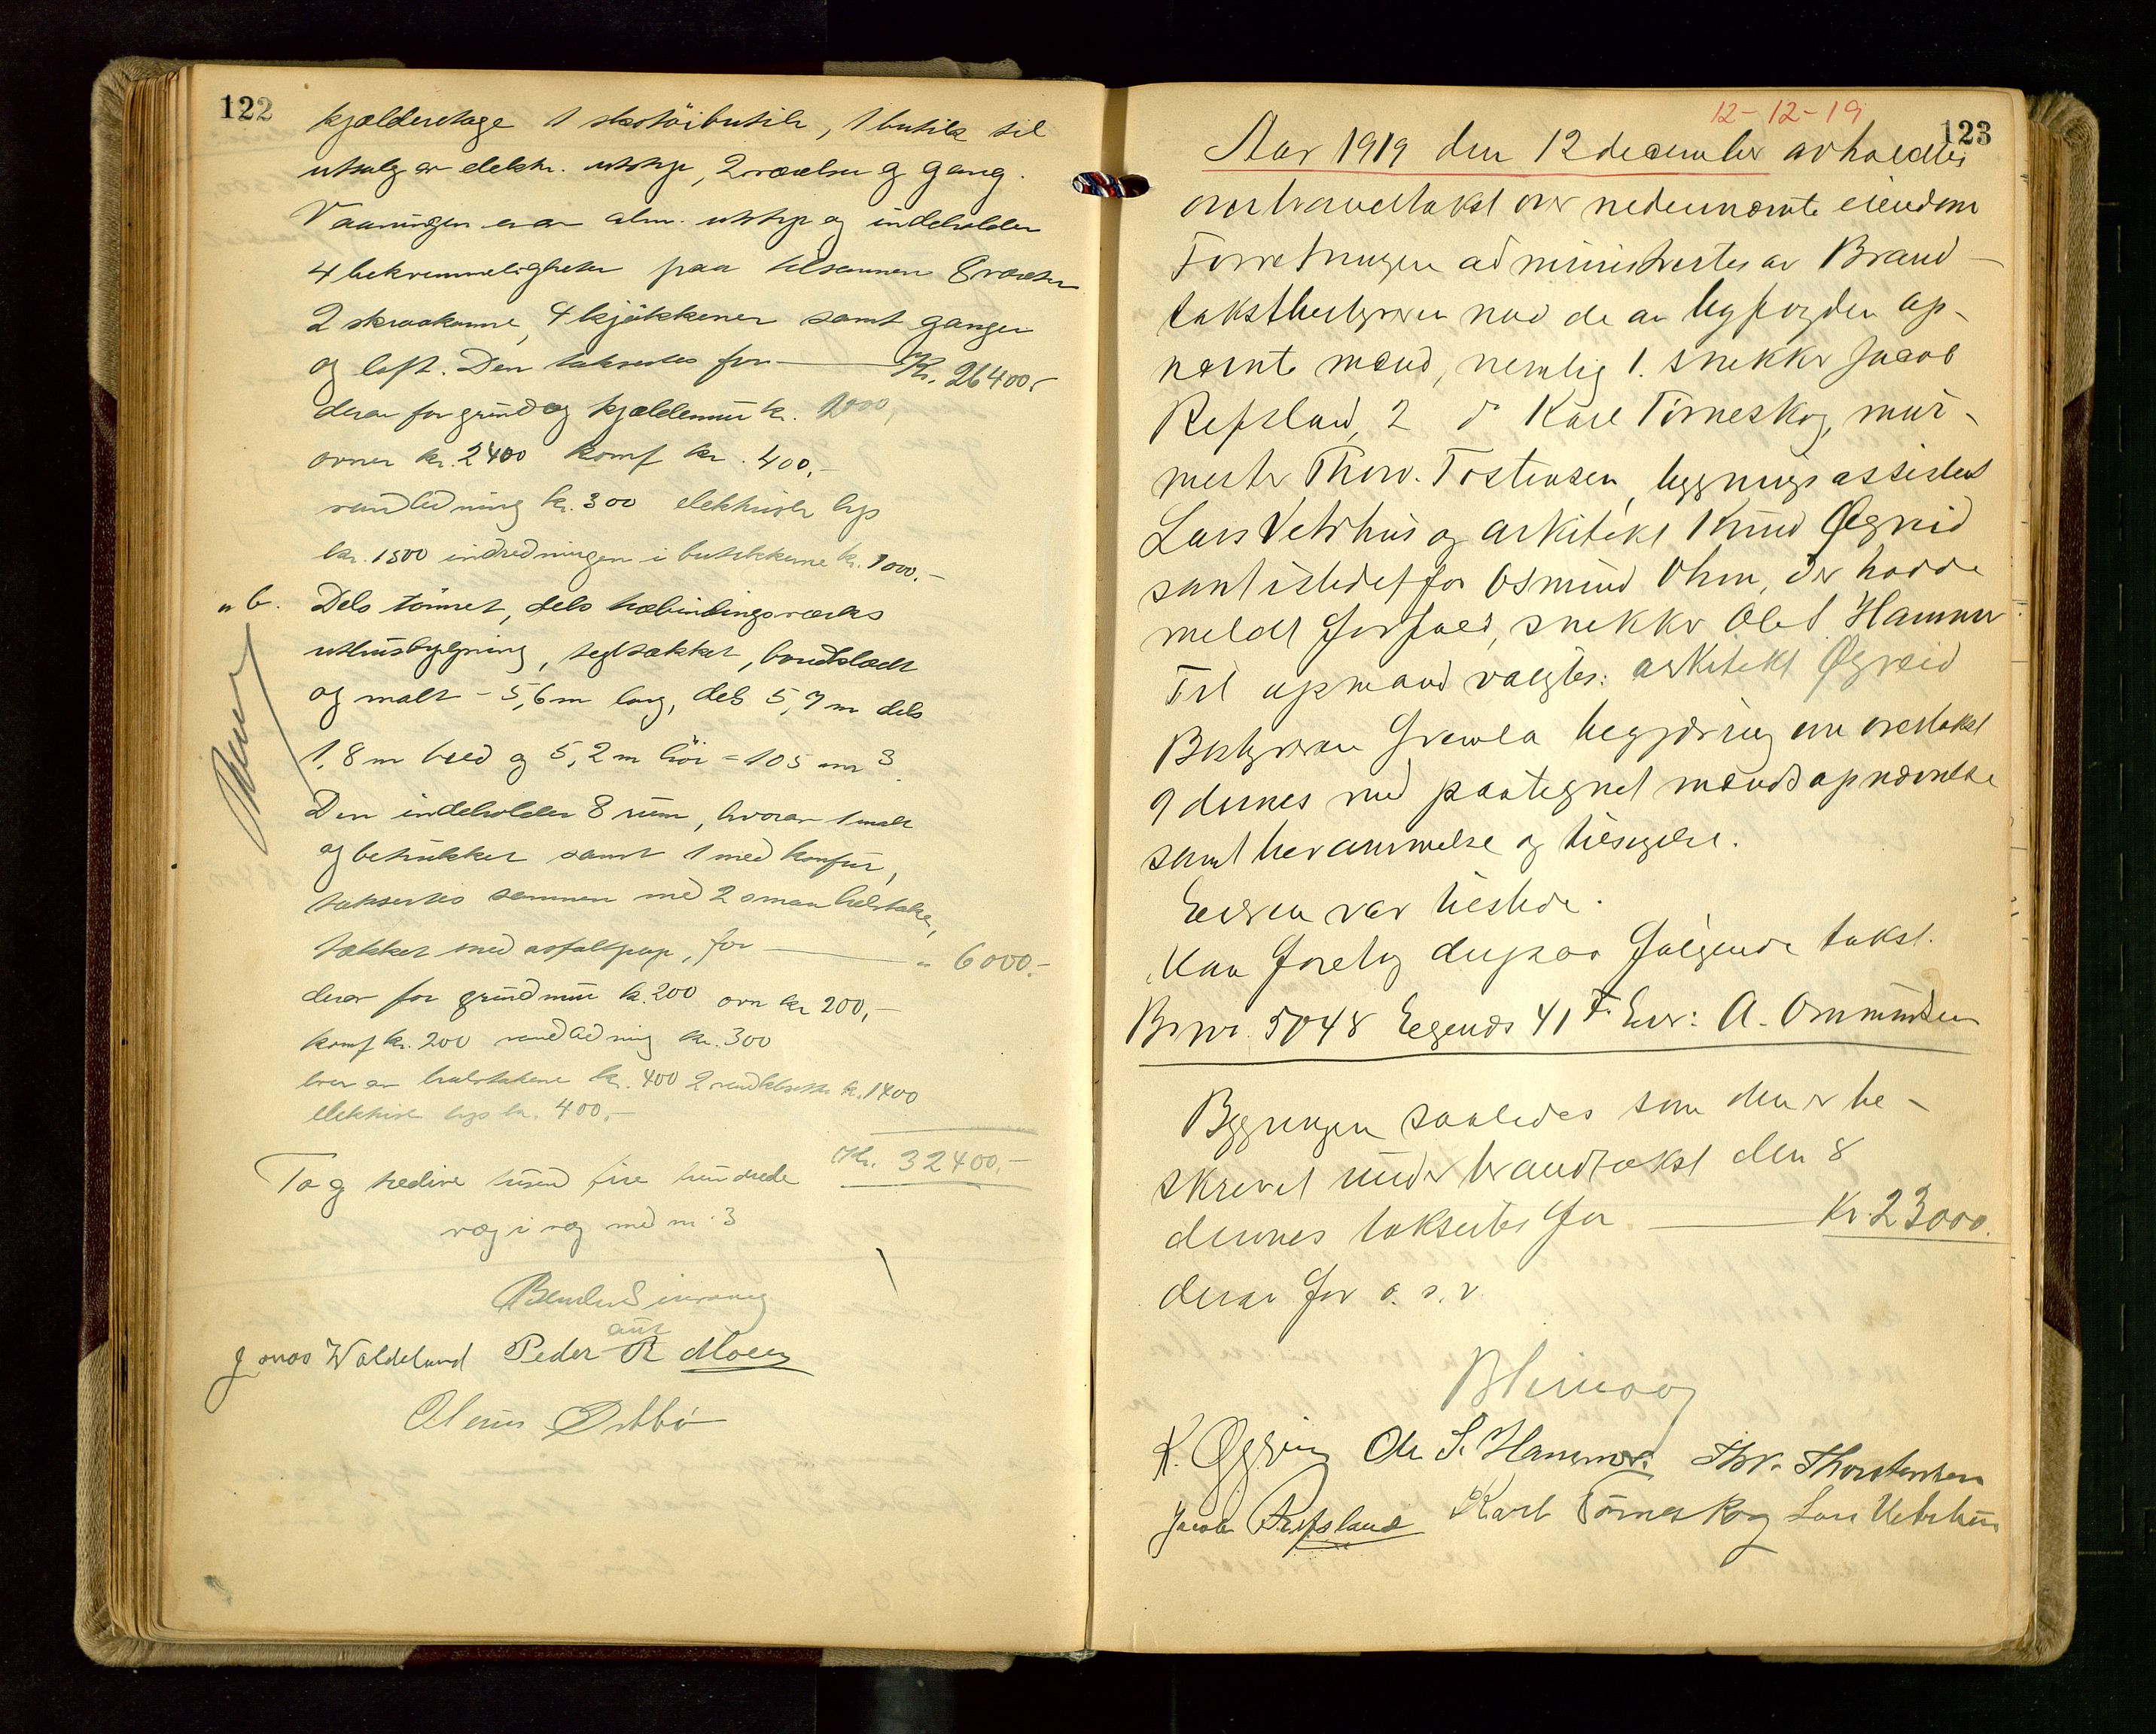 122
kjælderetage 1 skotöibutik, 1 butik til
utsalg av elektr. utstyr, 2 værelser og gang.
Vaaningen er av alm. utstyr og indeholder
4 bekvemmeligheter paa tilsammen 8 værelser
2 skraakamre, 4 kjökkener samt ganger
og loft. Den takseres for Kr. 26400,-
derav for grund og kjældermur kr. 2000,
ovner kr. 2400 komf kr. 400,-
vandledning kr. 300 elektrisk lys
kr. 1500 indredningen i butikkerne kr. 1000.-
" b. Dels tömret, dels træbindingsverks
uthusbygning, teglstækket, bordklædt
og malt - 5,6 m lang, dels 5,7 m dels
1,8 m bred og 5,2 m höi = 105 m 3.
Den indeholder 8 rum, hvorav 1 malt
og betrukket samt 1 med komfur,
takseres sammen med 2 smaa halvtaker,
tækket med asfaltpap, for " 6000.-
derav for grundmur kr. 200 ovn kr 200,-
komf kr. 200 vandledning kr. 300
hver av halvtakene kr. 400 2 vandklosetter kr. 1400
elektrisk lys kr. 400,-
Kr. 32400,-
To og tredive tusend fire hundrede
væg i væg med nr. 3
Jonas Waldeland Peder R Moen
Olenius Östbö
12-12-19
123
Aar 1919 den 12 december avholdtes
overbrandtakst over nedennævnte eiendom
Forretningen administrertes av Brand-
takstbestyreren med de av byfogden op-
nævnte mænd, nemlig 1. snekker Jacob
Refsland, 2 do Karl Törneskog, mur-
mester Thorv. Tostensen, bygningsassistent
Lars Vetrhus og arkitekt Knud Øgreid
samt istedetfor Osmund Ohm, der hadde
meldt forfald, snekker Ole S Hammer
Til opmand valgtes: arkitekt Øgreid
Bestyreren fremla begjæring om overtakst
9 dennes med paategnet mændsopnævnelse
samt berammelse og tilsigelse.
Eieren var tilstede.
Man foretog derpaa følgende takst.
Br nr. 5048 Eegends 41 F. Eier: A. Ommundsen
Bygningen saaledes som den er be-
skrevet under brandtakst den 8
dennes takseres for Kr. 23000.
derav for o. s. v.
K. Øgreid Ole S. Hammer. Thv. Thorstensen
Jacob Refsland Karl Törneskog Lars Vetrhus